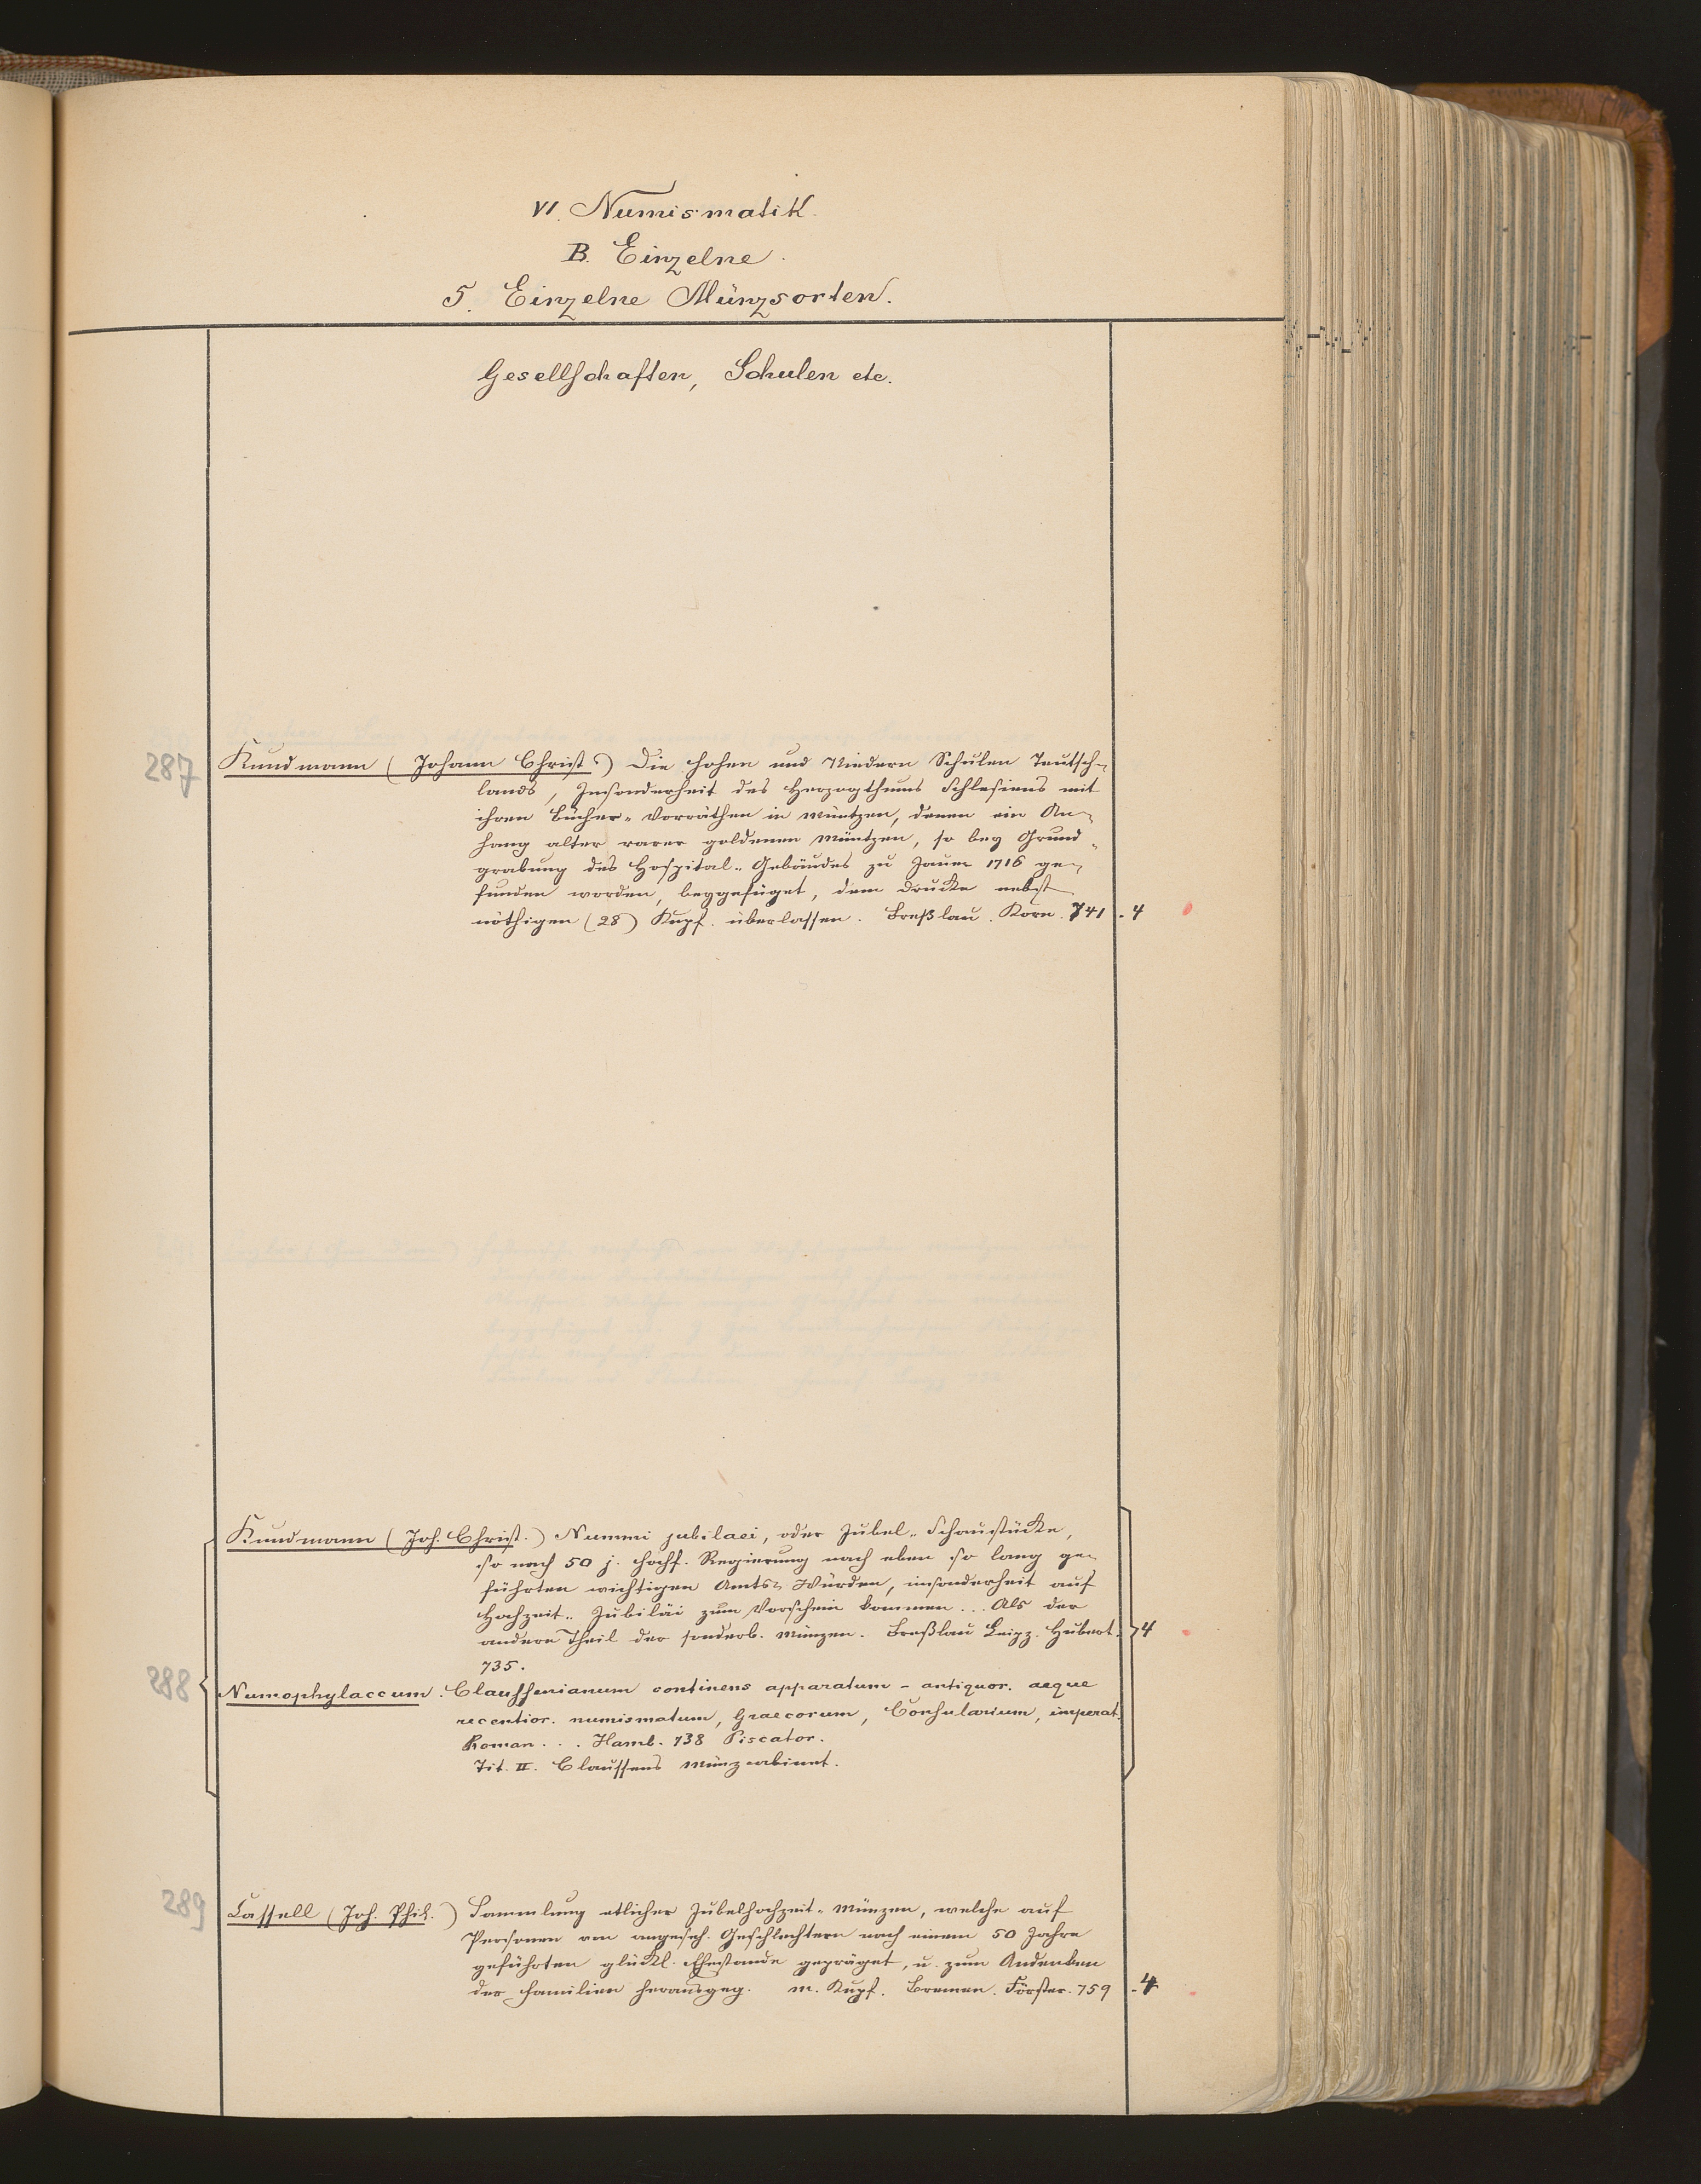 VI. Numismatik.
B. Einzelne.
5. Einzelne Münzsorten.
Gesellschaften, Schulen etc.
287 Kundmann (Johann Christ.) Die hohen und Niedern Schulen Teutsch-
lands, Insonderheit des Herzogthums Schlesiens mit
ihren Bücher-Vorräthen in Müntzen, denen ein An-
hang alter rarer goldenen Müntzen, so bey Grund-
grabung des Hospital-Gebäudes zu Jauer 1716 ge-
funden worden, beygefüget, dem Drucke nebst
nöthigen (28) Kupf. überlassen. Breßlau. Korn. 741. 4
Kundmann (Joh. Christ.) Nummi jubilaei, oder Jubel-Schaustücke,
so nach 50 j. hochf. Regierung nach eben so lang ge-
führten wichtigen Amts-Würden, insonderheit auf
Hochzeit-Jubiläi zum Vorschein kommen... Als der
andere Theil der sonderb. Münzen. Breßlau Leipz. Hubert. 4
735.
288 Numophylaccum Claussenianum continens apparatum - antiquor. aeque
recentior. numismatum, Graecorum, Consularium, imperat.
Roman... Hamb. 738 Piscator.
Tit. II. Claussens Münzcabinet.
289 Cassell (Joh. Phil.) Sammlung etlicher Jubelhochzeit-Münzen, welche auf
Personen von angeseh. Geschlechtern nach einem 50 Jahre
geführten glückl. Ehestande gepräget, u. zum Andenken
der Familien herausgeg. m. Kupf. Bremen. Förster. 759. 4